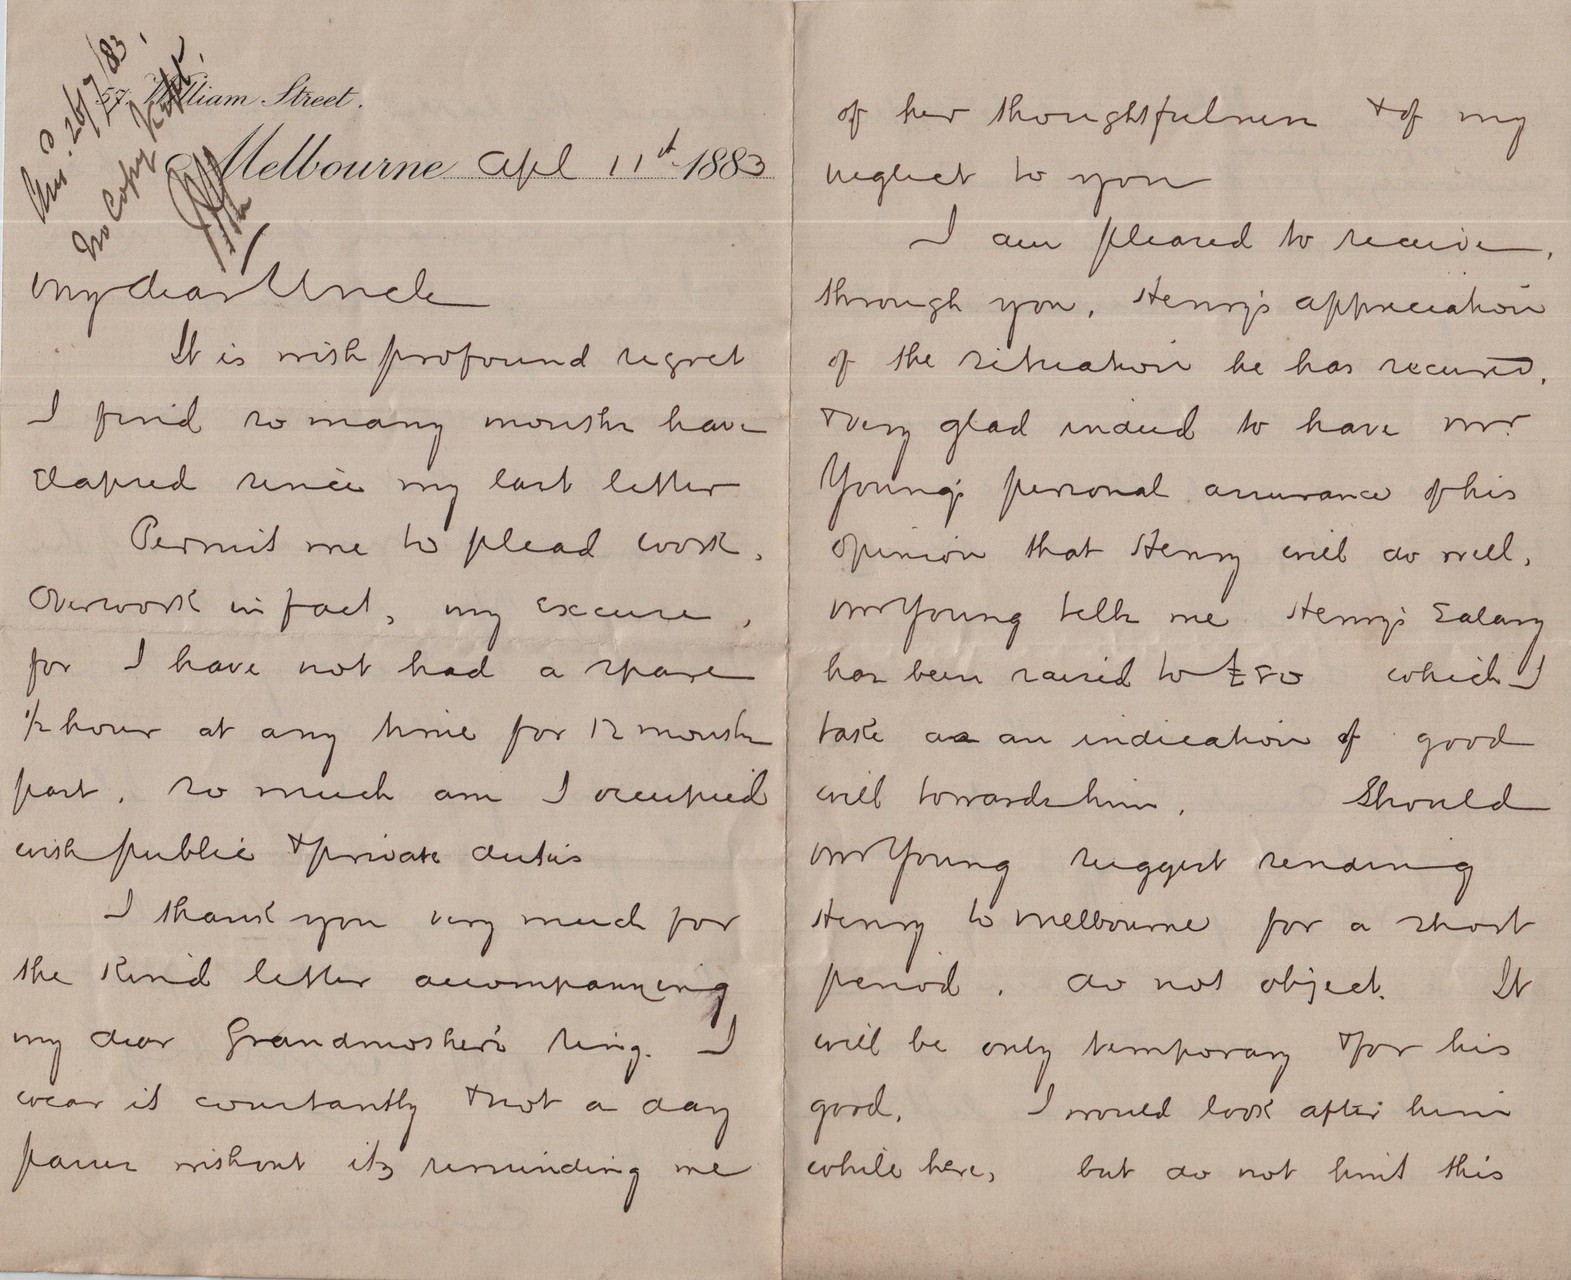 Ans'd 26/7/83.
No Copy Kept.
57, William Street.
Melbourne Apl 11th 1883
My dear Uncle
It is with profound regret
I find so many months have
elapsed since my last letter
Permit me to plead work,
overwork in fact, my excuse,
for I have not had a spare
1/2 hour at any time for 12 months
past, so much am I occupied
with public & private duties
I thank you very much for
the kind letter accompanying
my dear Grandmother's ring. I
wear it constantly & not a day
passes without its reminding me
of her thoughtfulness & of my
neglect to you
I am pleased to receive,
through you, Henry's appreciation
of the situation he has secured,
& very glad indeed to have Mr.
Young's personal assurance of his
opinion that Henry will do well,
Mr Young tells me Henry's Salary
has been raised to £80 which I
take as an indication of good
will towards him. Should
Mr Young suggest sending
Henry to Melbourne for a short
period, do not object. It
will be only temporary & for his
good. I would look after him
while here, but do not hint this